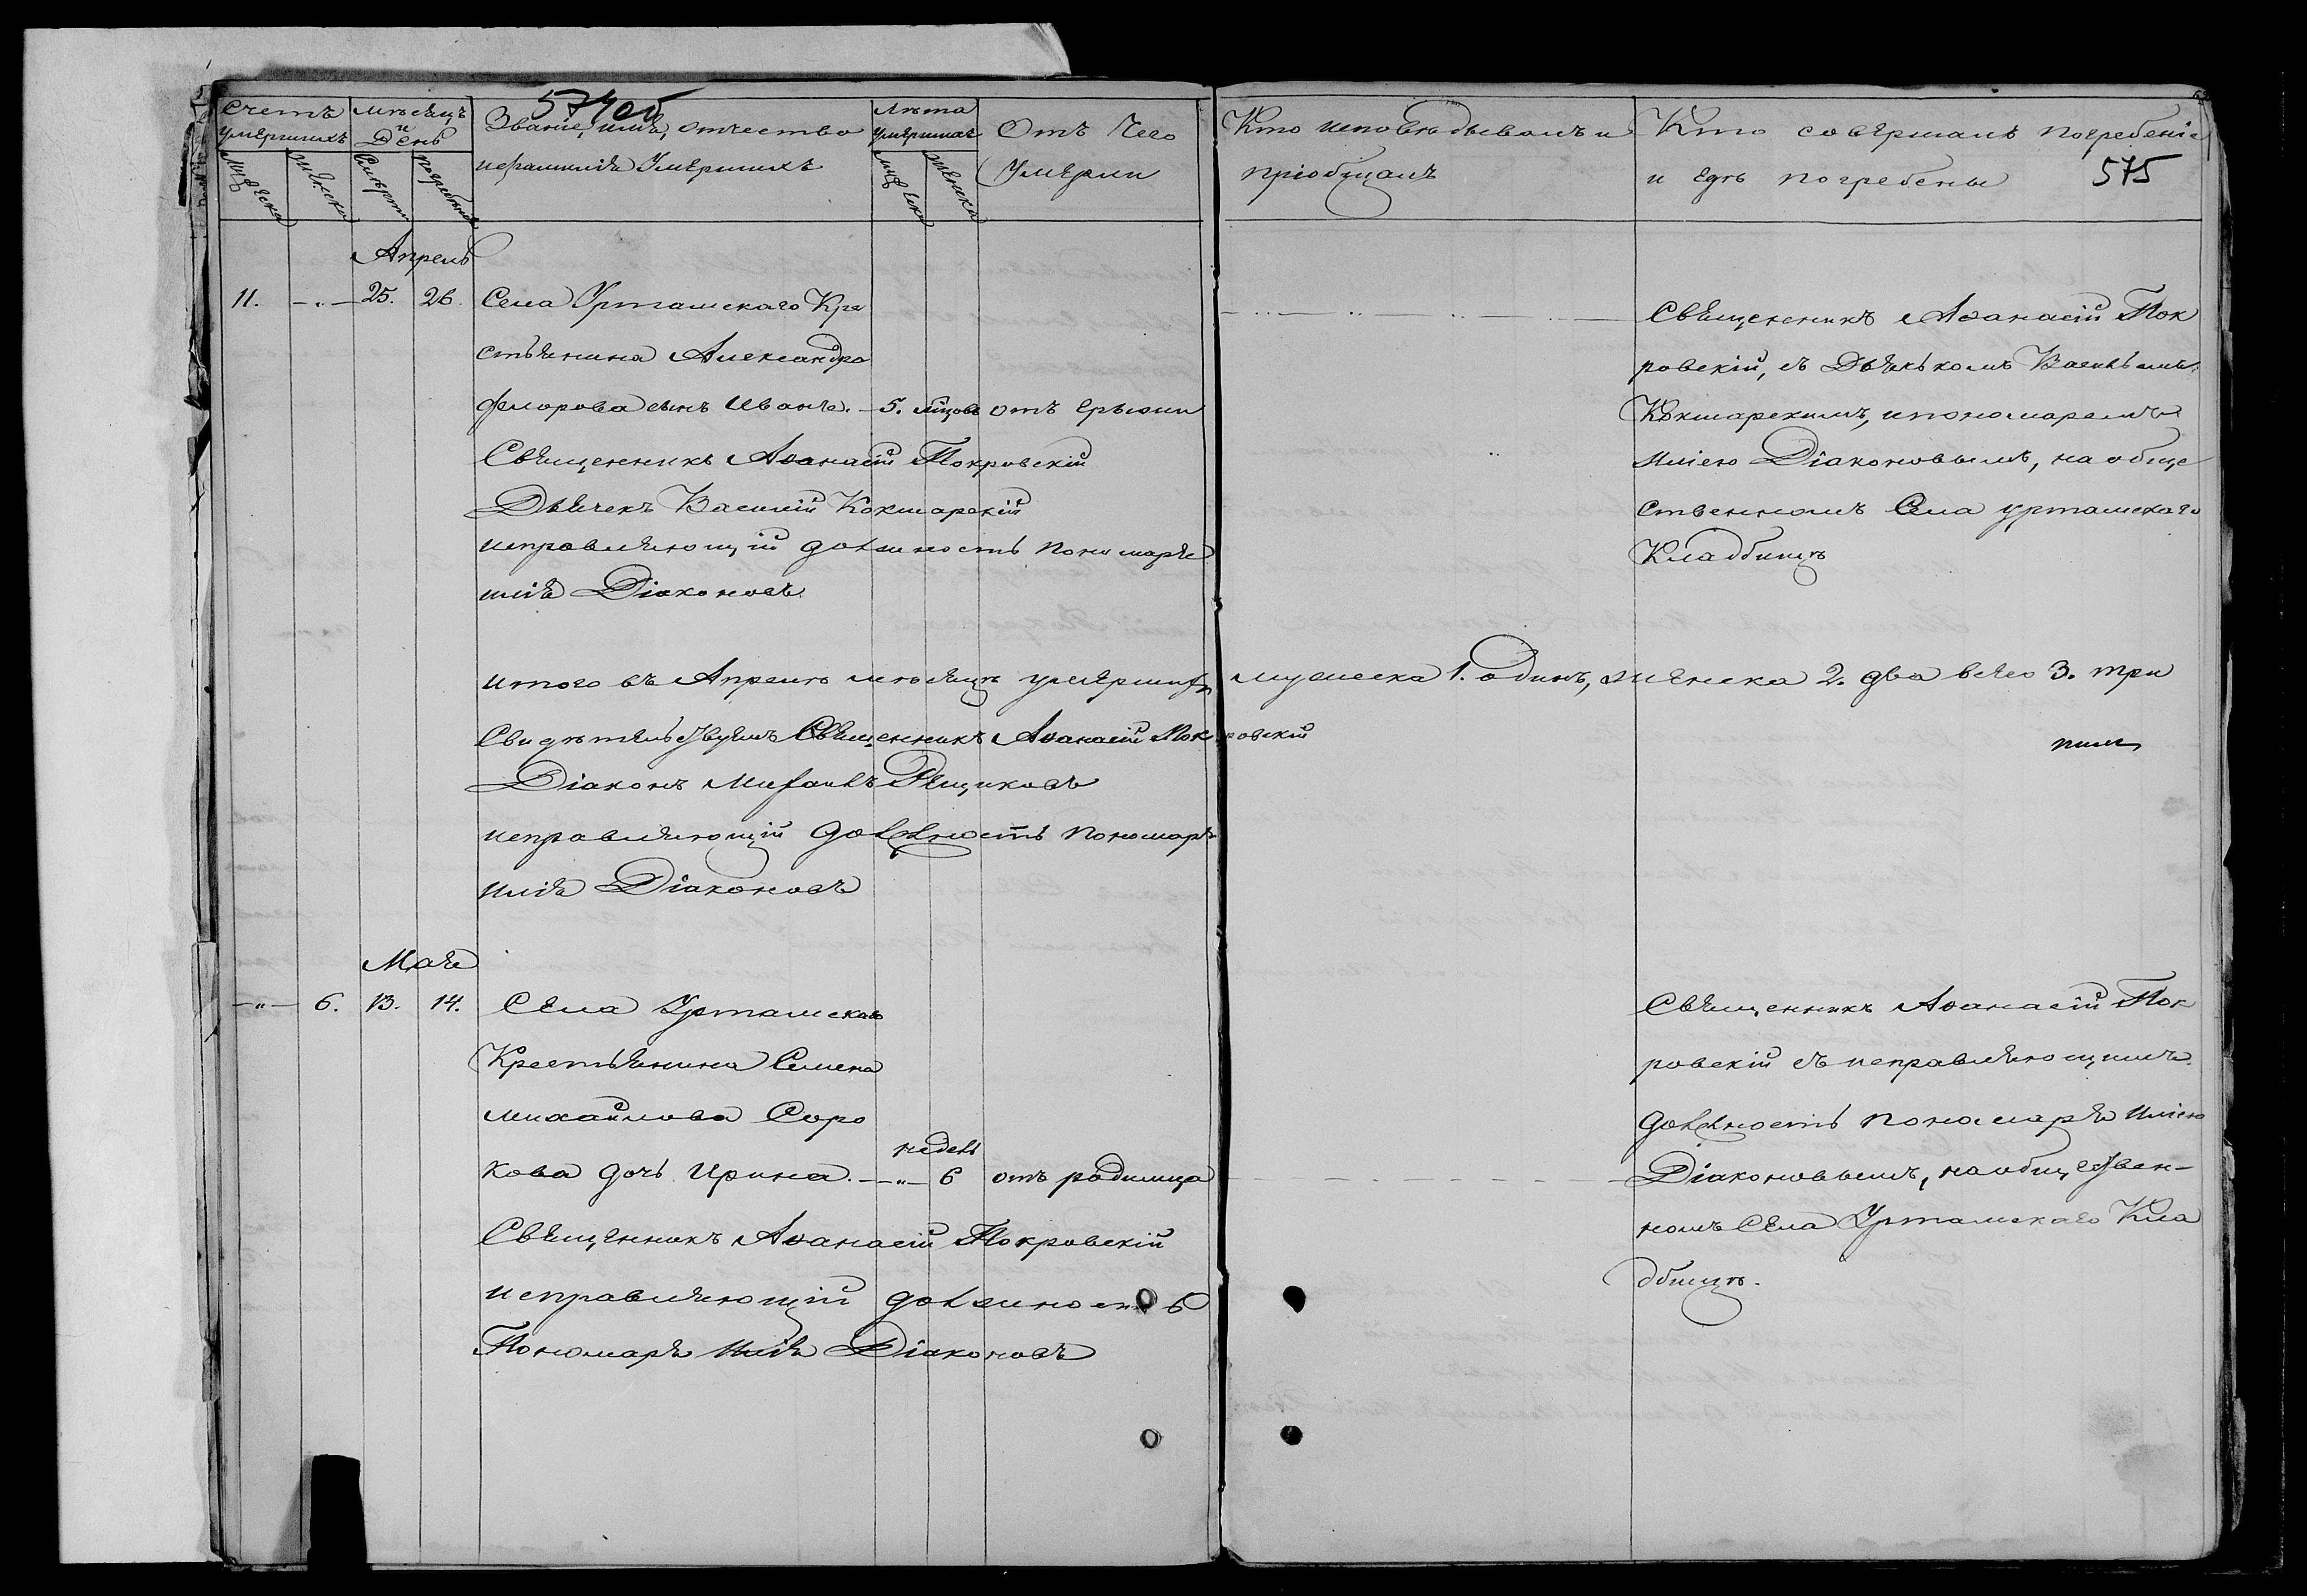 574об
Счетъ умершихъ
Мѣсяцъ и День
Званіе, имя, отчество и фамилія Умершихъ
Лѣта умершаго
Отъ Чего Умерли
Кто исповѣдывалъ и пріобщалъ
Кто совершалъ погребеніе и гдѣ погребены
575
Мужеска
Женска
Смерти
Погребенія
Мужеска
Женска
Апрель
11. —"— 25. 26. Села Уртамскаго Кре
стьянина Александра
Федорова сынъ Иванъ. — 5. мѣсцовъ отъ грыжи
Священникъ Аѳанасій Покровскій
Дьячекъ Василій Кокшарскій
исправляющій должность пономаря
Илія Діаконовъ
Священникъ Аѳанасій Пок
ровскій, съ Дьячькомъ Васильемъ
Кокшарскимъ, и пономаремъ
Иліею Діаконовымъ, на обще
ственномъ Села уртамскаго
Кладбищѣ
итого въ Апрелѣ мѣсяцѣ умершихъ мужеска 1. одинъ, женска 2. два всего 3. три
Свидѣтельствуемъ Священникъ Аѳанасій Покровскій
Діаконъ Михаилъ Ящиковъ
исправляющій должность пономаря
Илія Діаконовъ
Мая
—"— 6. 13. 14. Села Уртамскаго
Крестьянина Семена
михайлова Соро
кова дочь Ирина. —"— 6 недель отъ родимца
Священникъ Аѳанасій Покровскій
исправляющій должность
Пономаря Илія Діаконовъ
Священникъ Аѳанасій Пок
ровскій съ исправляющимъ
должность пономаря Иліею
Діаконовымъ, на обществен-
номъ Села Уртамскаго Кла
дбищѣ.